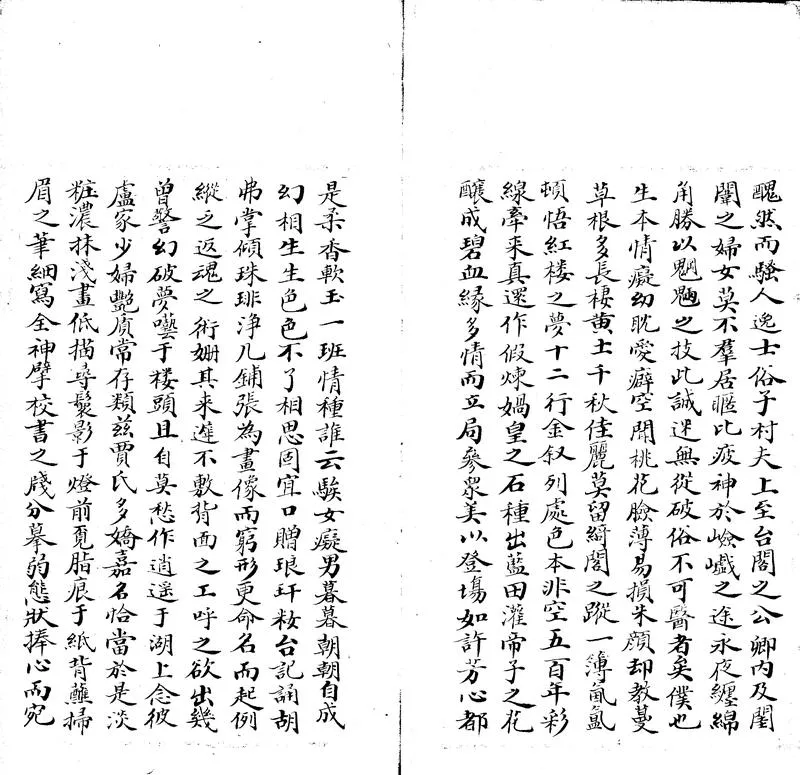 醜然而騷人逸士俗子村夫上至台閣之公卿内及閨
闈之婦女莫不羣居暱比疲神於嶮巇之途永夜纒綿
角勝以魍魎之技此誠迷無從破俗不可醫者矣僕也
生本情癡幼耽愛癖空聞桃花臉薄易損朱顔却教蔓
草根多長棲黄土千秋佳麗莫留綺閣之蹤一簿氤氲
頓悟紅楼之夢十二行金釵列處色本非空五百年彩
線牽来真還作假煉媧皇之石種出藍田灌帝子之花
釀成碧血縁多情而立局參衆美以登塲如許芳心都
是柔香軟玉一班情種誰云騃女癡男暮暮朝朝自成
幻相生生色色不了相思固宜口贈琅玕粧台記誦胡
弗掌傾珠琲浄几鋪張為畫像而窮形更命名而起例
縱乏返魂之術姍其来遲不敷背面之工呼之欲出幾
曾警幻破夢囈于楼頭且自莫愁作逍遥于湖上念彼
盧家少婦艷質常存類兹賈氏多嬌嘉名恰當於是淡
粧濃抹淺畫低描尋鬟影于燈前覓脂痕于紙背蘸掃
眉之筆細寫全神擘校書之牋分摹弱態狀捧心而宛